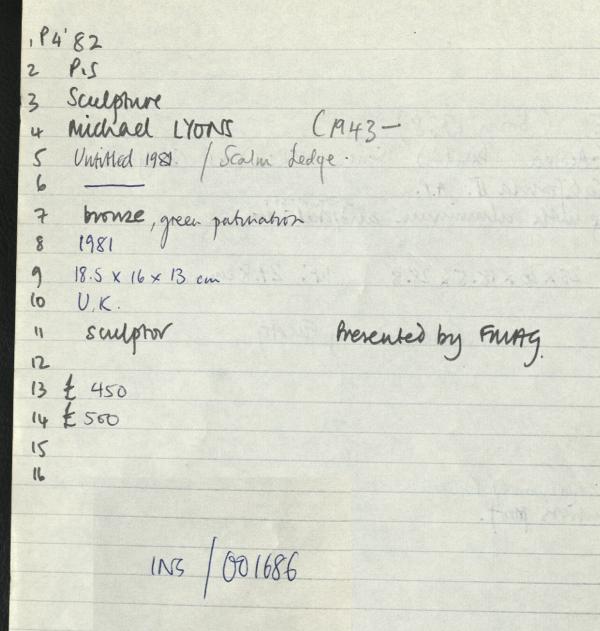 1 P4'82
2 P.S
3 Sculpture
4 Michael LYONS (1943—
5 Untitled 1981 / Scalm Ledge.
6 ——
7 bronze, green patination
8 1981
9 18.5 x 16 x 13 cm
10 U.K.
11 sculptor Presented by FMAG.
12
13 £ 450
14 £ 500
15
16
INS / 001686